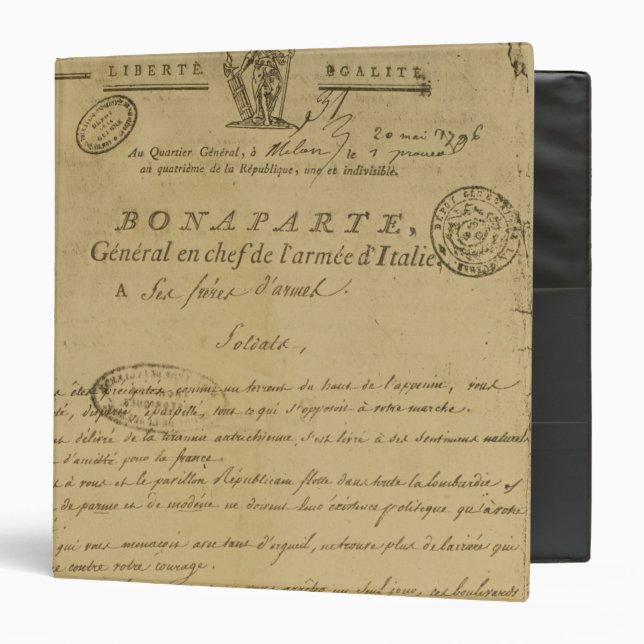 LIBERTÉ. ÉGALITÉ.
31
20 mai 1796
Au Quartier Général, à Milan le 1 prairial
an quatrième de la République, une et indivisible.
BONAPARTE,
Général en chef de l'armée d'Italie.
A Ses frères d'armes.
Soldats,
êtes précipités, comme un torrent du haut de l'appenin, vous
dispersé, éparpillé, tous ce qui s'opposoit à votre marche.
délivré de la tirannie autrichienne, s'est livré à ses sentimens naturel
d'amitié pour la france.
à vous et le pavillon Républicain flotte dans toute la lombardie
de parme et de modène ne doivent leur existence politique qu'à votre
qui vous menacoit avec tant d'orgueil, ne trouve plus de barière qui
contre votre courage.
arrêter un seul jour, ces boulevards